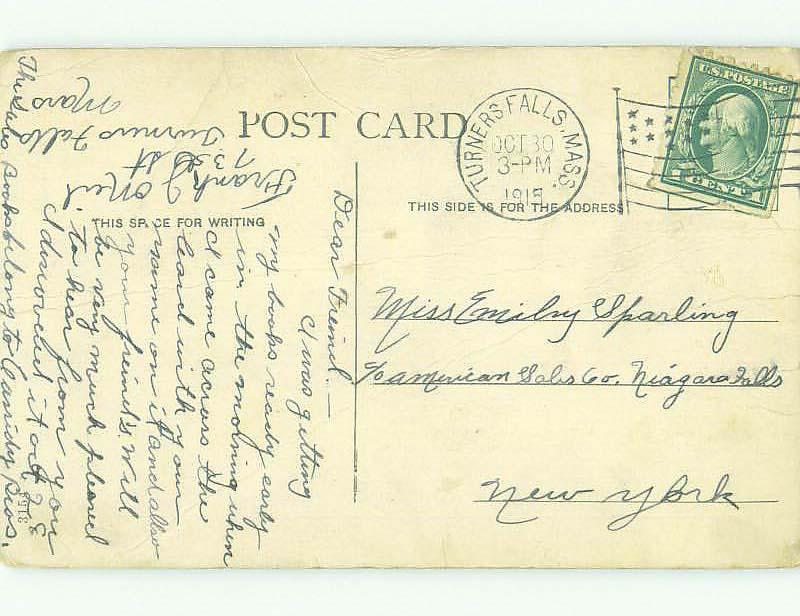 POST CARD
TURNERS FALLS, MASS.
OCT 30
3-PM
1915
U.S. POSTAGE
1 CENT 1
THIS SPACE FOR WRITING
THIS SIDE IS FOR THE ADDRESS
Miss Emily Sparling
c/o American Sales Co. Niagara Falls
New York
Dear Freind.—
I was getting
my books ready early
in the morning when
I came across the
card with your
name on it and also
your freind's. Will
be very much pleased
to hear from you
I discovered it Oct
Frank J O'Neil
73 St
Turners Falls
Mass
This belong to Bros.